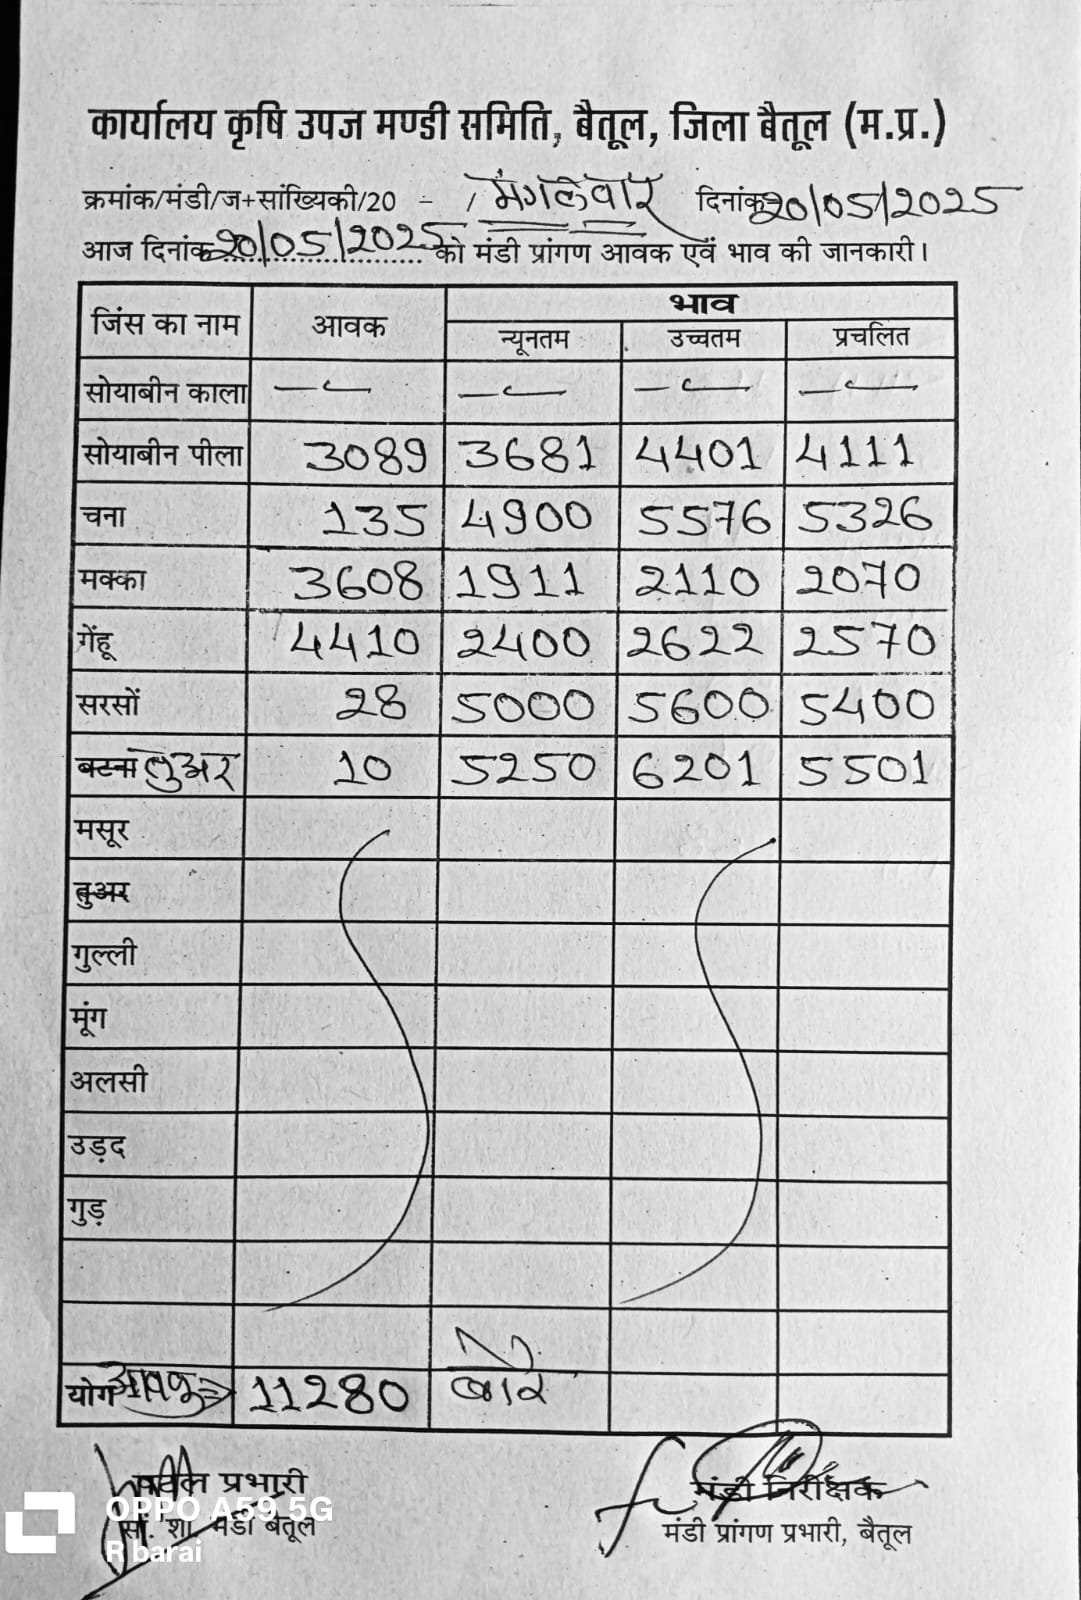 कार्यालय कृषि उपज मण्डी समिति, बैतूल, जिला बैतूल (म.प्र.)
क्रमांक/मंडी/ज+सांख्यिकी/20 - / मंगलवार दिनांक 20/05/2025
आज दिनांक 20/05/2025 को मंडी प्रांगण आवक एवं भाव की जानकारी।
जिंस का नाम आवक भाव
न्यूनतम उच्चतम प्रचलित
सोयाबीन काला — — — —
सोयाबीन पीला 3089 3681 4401 4111
चना 135 4900 5576 5326
मक्का 3608 1911 2110 2070
गेंहू 4410 2400 2622 2570
सरसों 28 5000 5600 5400
बटना तुअर 10 5250 6201 5501
मसूर
तुअर
गुल्ली
मूंग
अलसी
उड़द
गुड़
योग आवक 11280 बोरे
प्रभारी मंडी निरीक्षक
सां. शा. मंडी बैतूल मंडी प्रांगण प्रभारी, बैतूल
OPPO A59 5G
R barai